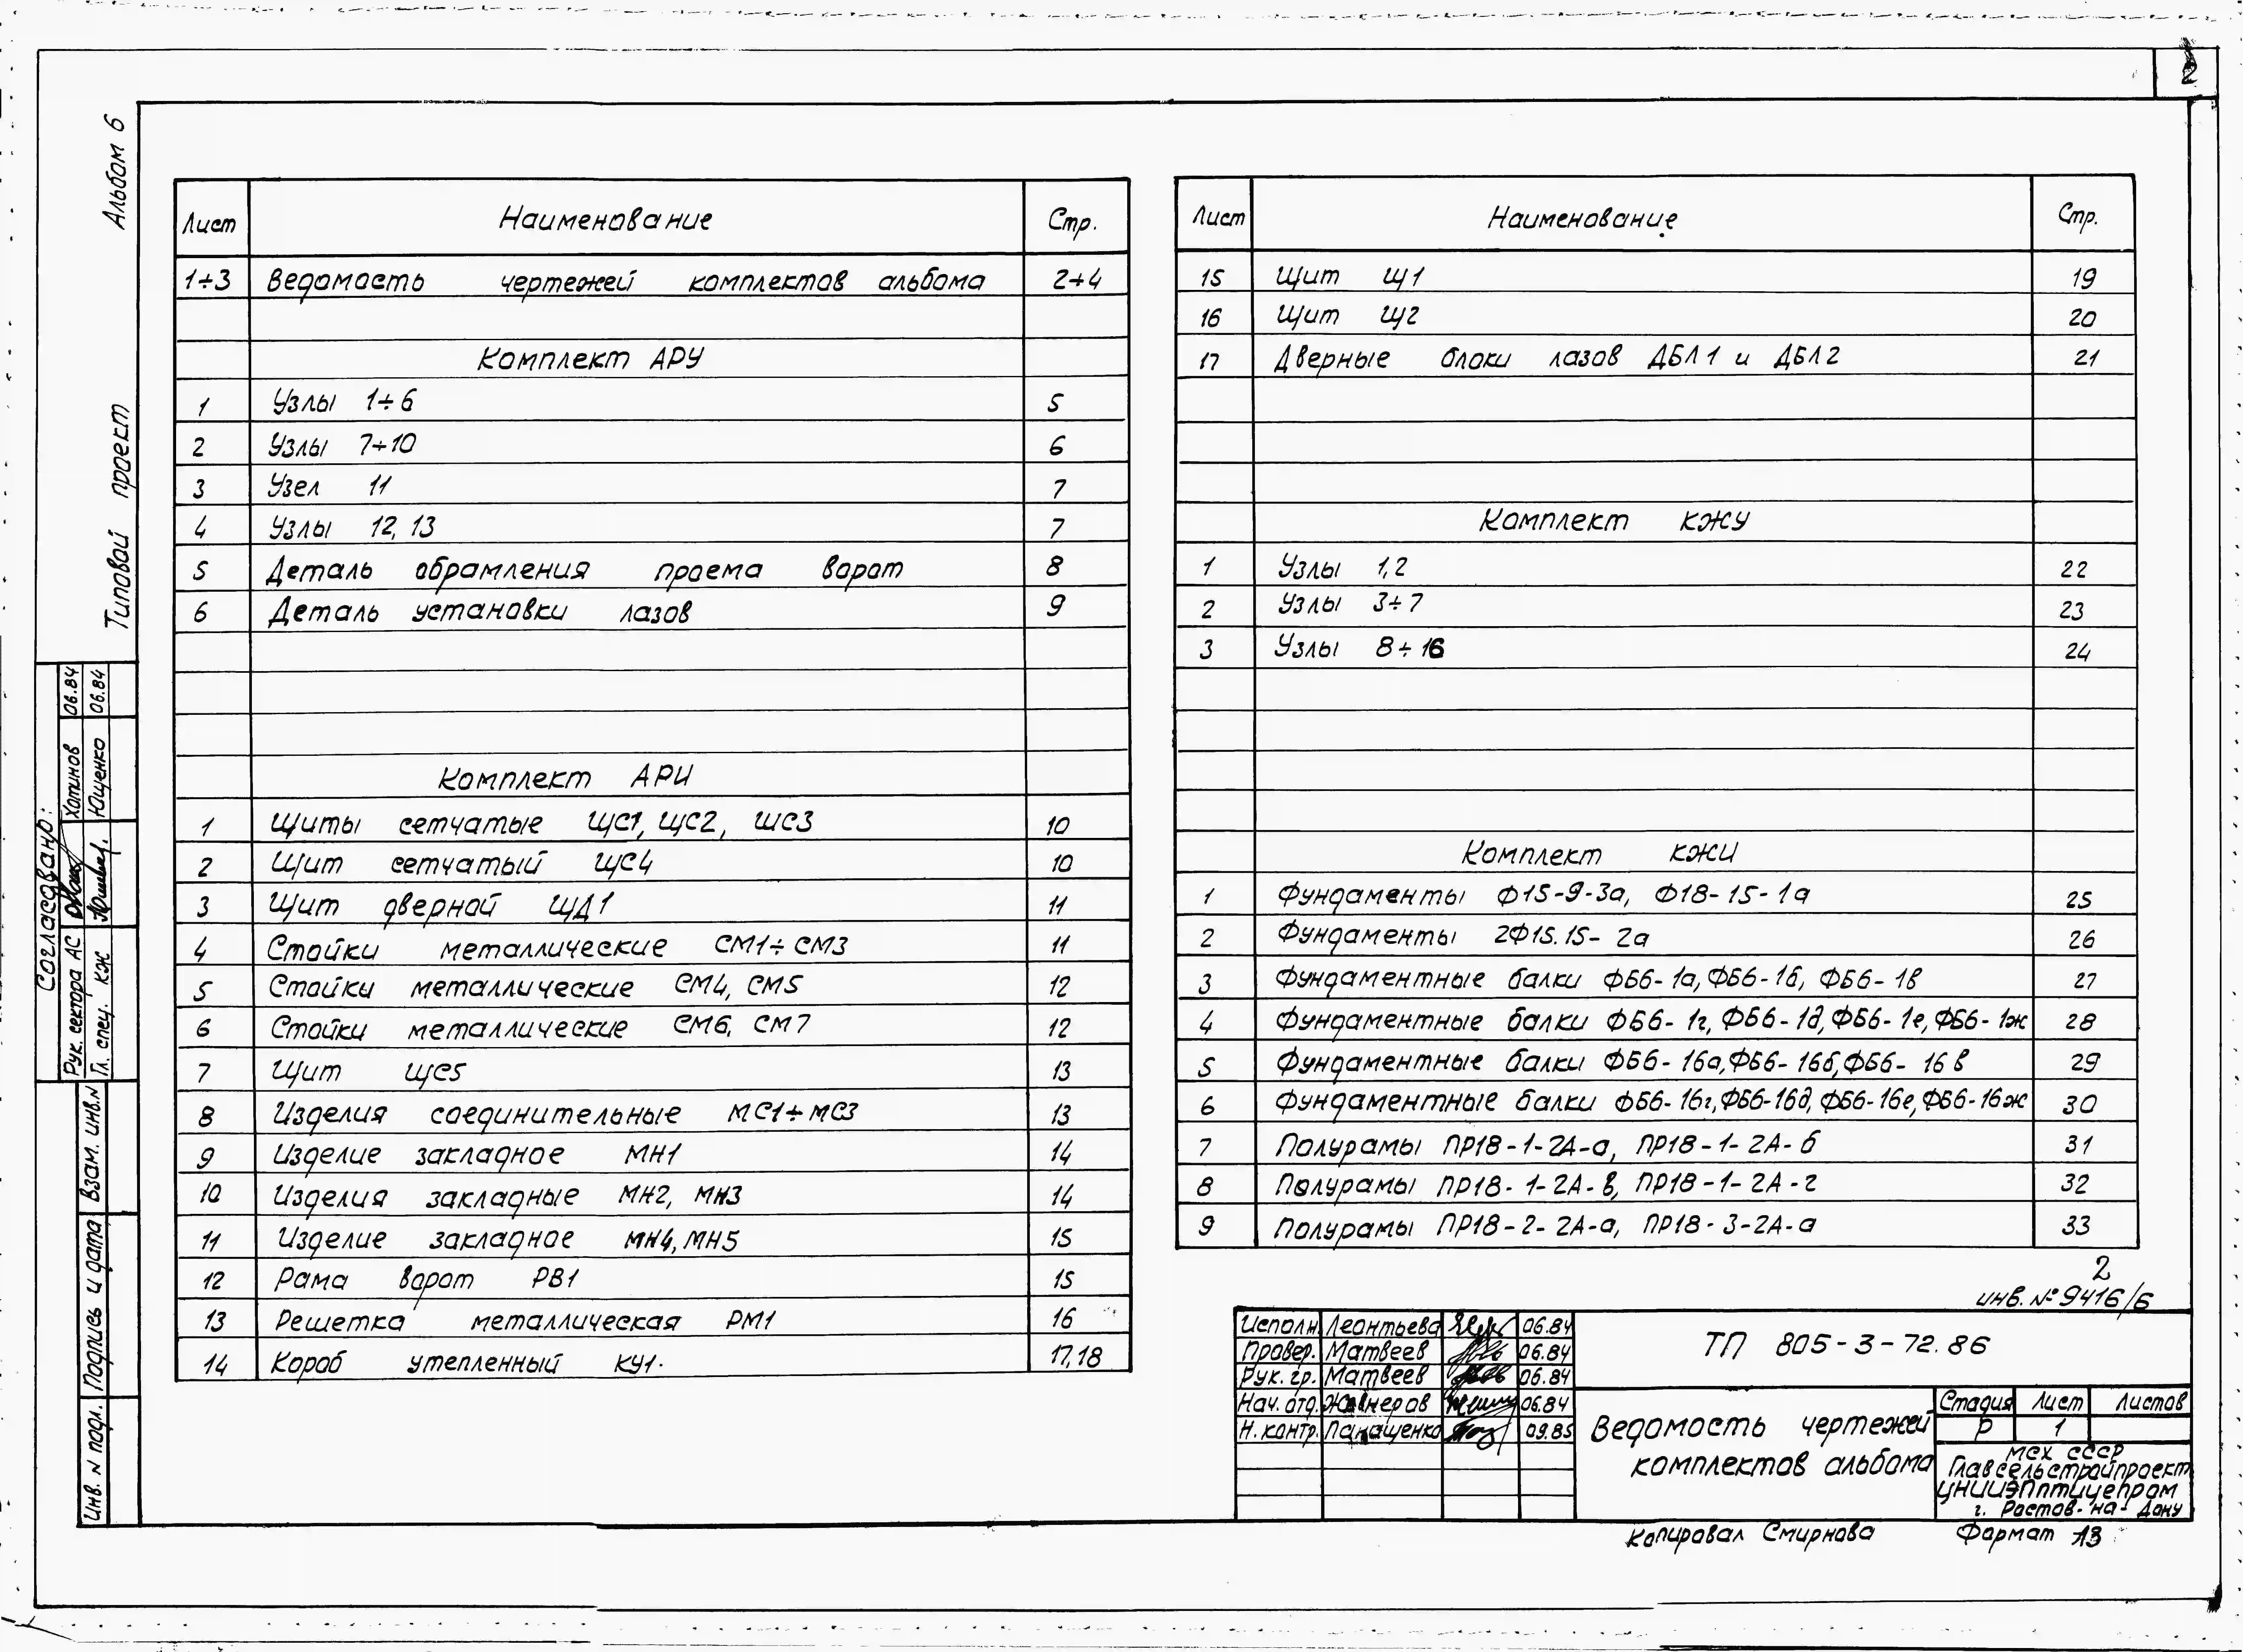 2
Альбом 6
Типовой проект
Лист Наименование Стр.
1÷3 Ведомость чертежей комплектов альбома 2÷4
Комплект АРУ
1 Узлы 1÷6 5
2 Узлы 7÷10 6
3 Узел 11 7
4 Узлы 12, 13 7
5 Деталь обрамления проема ворот 8
6 Деталь установки лазов 9
Комплект АРИ
1 Щиты сетчатые ЩС1, ЩС2, ШС3 10
2 Щит сетчатый ЩС4 10
3 Щит дверной ЩД1 11
4 Стойки металлические СМ1÷СМ3 11
5 Стойки металлические СМ4, СМ5 12
6 Стойки металлические СМ6, СМ7 12
7 Щит ЩС5 13
8 Изделия соединительные МС1÷МС3 13
9 Изделие закладное МН1 14
10 Изделия закладные МН2, МН3 14
11 Изделие закладное МН4, МН5 15
12 Рама ворот РВ1 15
13 Решетка металлическая РМ1 16
14 Короб утепленный КУ1. 17,18
Лист Наименование Стр.
15 Щит Щ1 19
16 Щит Щ2 20
17 Дверные блоки лазов ДБЛ1 и ДБЛ2 21
Комплект КЖУ
1 Узлы 1,2 22
2 Узлы 3÷7 23
3 Узлы 8÷16 24
Комплект КЖИ
1 Фундаменты Ф15-9-3а, Ф18-15-1а 25
2 Фундаменты 2Ф15.15-2а 26
3 Фундаментные балки ФБ6-1а, ФБ6-1б, ФБ6-1в 27
4 Фундаментные балки ФБ6-1г, ФБ6-1д, ФБ6-1е, ФБ6-1ж 28
5 Фундаментные балки ФБ6-16а, ФБ6-16б, ФБ6-16в 29
6 Фундаментные балки ФБ6-16г, ФБ6-16д, ФБ6-16е, ФБ6-16ж 30
7 Полурамы ПР18-1-2А-а, ПР18-1-2А-б 31
8 Полурамы ПР18-1-2А-в, ПР18-1-2А-г 32
9 Полурамы ПР18-2-2А-а, ПР18-3-2А-а 33
2
инв. № 9416/6
Исполн. Леонтьева 06.84
Провер. Матвеев 06.84
Рук. гр. Матвеев 06.84
Нач. отд. 06.84
Н. контр. Панащенко 09.85
ТП 805-3-72.86
Ведомость чертежей
комплектов альбома
Стадия Лист Листов
Р 1
МСХ СССР
Главсельстройпроект
ЦНИИЭПптицепром
г. Ростов-на-Дону
Копировал Смирнова Формат А3
Согласовано:
Рук. сектора АС Хатинов 06.84
Гл. спец. КЖ Ющенко 06.84
Взам. инв. N
Подпись и дата
Инв. N подл.